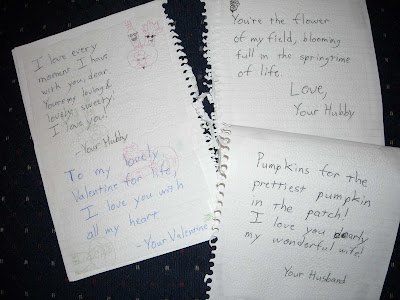 I love every
moment I have
with you, dear.
You're my loving &
lovely sweety!
I love you!
-Your Hubby
To my lovely
Valentine for life,
I love you with
all my heart
-Your Valentine
You're the flower
of my field, blooming
full in the springtime
of life.
Love,
Your Hubby
Pumpkins for the
prettiest pumpkin
in the patch!
I love you dearly
my wonderful wife!
Your Husband